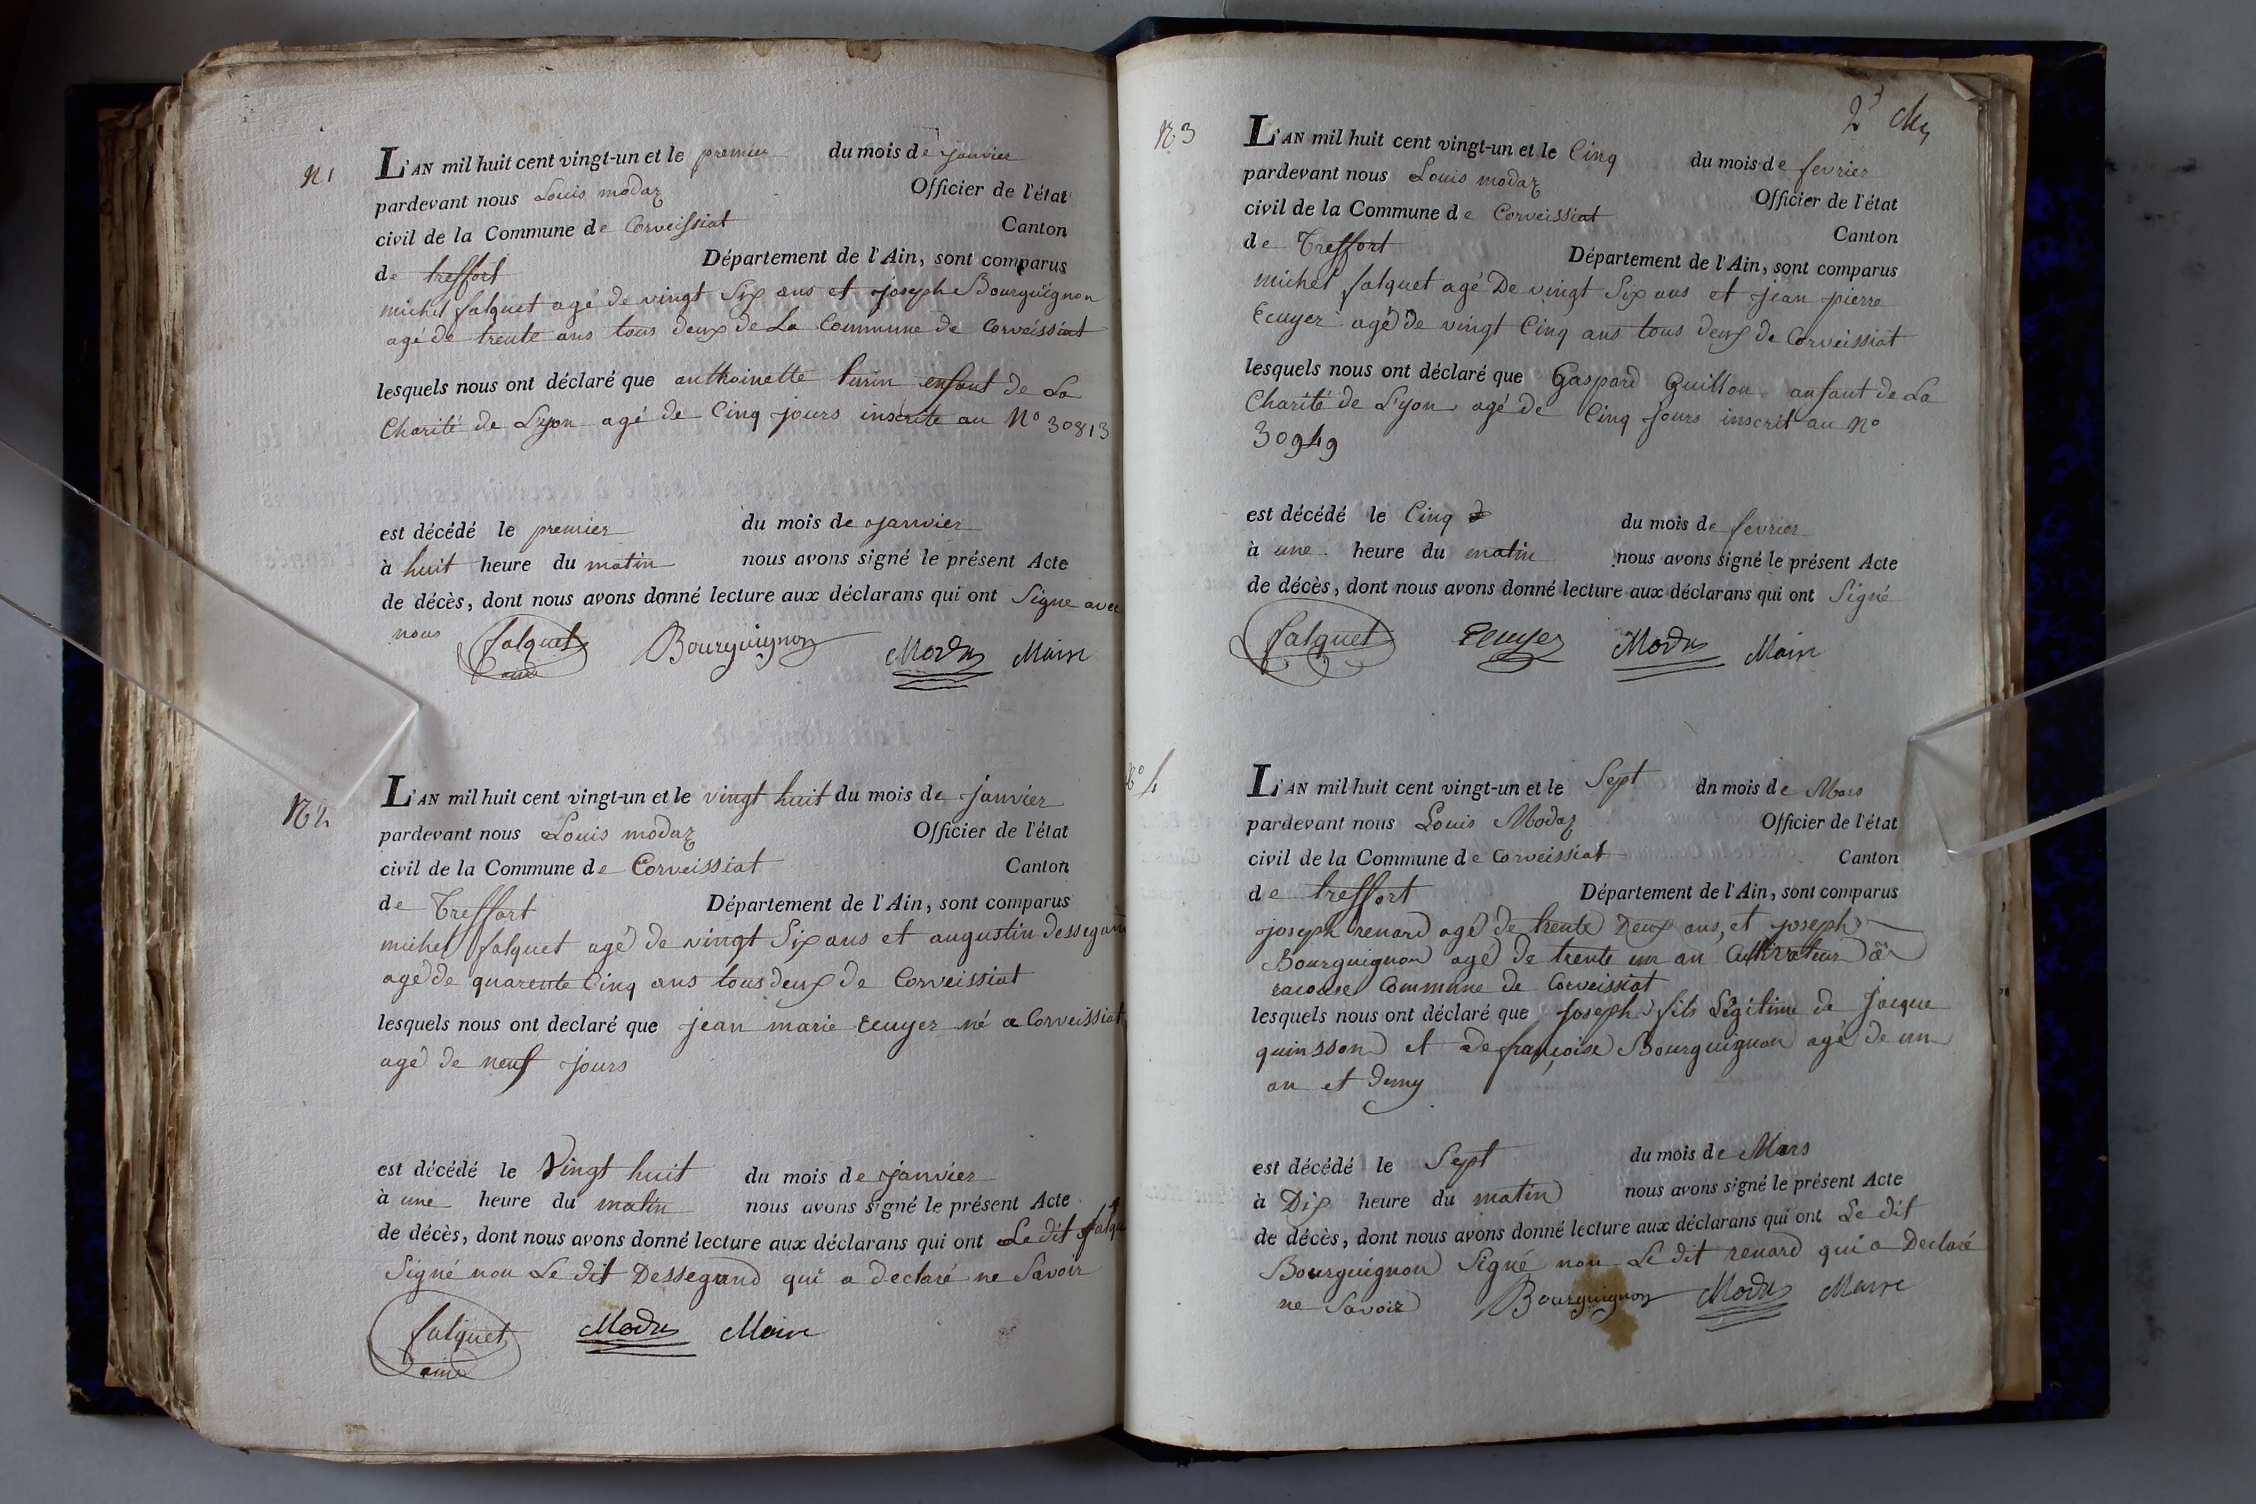 N 1
L'AN mil huit cent vingt-un et le premier du mois de janvier
pardevant nous Louis modaz Officier de l'état
civil de la Commune de Corveissiat Canton
de treffort Département de l'Ain, sont comparus
michel falquet agé de vingt Six ans et joseph Bourguignon
agé de trente ans tous deux de La Commune de Corveissiat
lesquels nous ont déclaré que anthoinette enfant de La
Charité de Lyon agé de Cinq jours inscrite au No 30813
est décédé le premier du mois de janvier
à huit heure du matin nous avons signé le présent Acte
de décès, dont nous avons donné lecture aux déclarans qui ont Signe avec
nous falquet Bourguignon Modas Maire
ainé
N 2
L'AN mil huit cent vingt-un et le vingt huit du mois de janvier
pardevant nous Louis modaz Officier de l'état
civil de la Commune de Corveissiat Canton
de Treffort Département de l'Ain, sont comparus
michel falquet agé de vingt Six ans et augustin
agé de quarente Cinq ans tous deux de Corveissiat
lesquels nous ont declaré que jean marie Ecuyer né a Corveissiat
agé de neuf jours
est décédé le Vingt huit du mois de janvier
à une heure du matin nous avons signé le présent Acte
de décès, dont nous avons donné lecture aux déclarans qui ont Le dit
Signé non Le dit Dessegand qui a declaré ne Savoir
falquet Modas Maire
ainé
2
N 3
L'AN mil huit cent vingt-un et le Cinq du mois de fevrier
pardevant nous Louis modaz Officier de l'état
civil de la Commune de Corveissiat Canton
de Treffort Département de l'Ain, sont comparus
michel falquet agé De vingt Six ans et jean pierre
Ecuyer agé de vingt Cinq ans tous deux de Corveissiat
lesquels nous ont déclaré que Gaspard Guillon anfant de La
Charité de Lyon agé de Cinq jours inscrit au No
30949
est décédé le Cinq du mois de fevrier
à une heure du matin nous avons signé le présent Acte
de décès, dont nous avons donné lecture aux déclarans qui ont Signé
falquet Ecuyer Modas Maire
No 4
L'AN mil huit cent vingt-un et le Sept dn mois de Mars
pardevant nous Louis Modaz Officier de l'état
civil de la Commune de Corveissiat Canton
de treffort Département de l'Ain, sont comparus
joseph renard agé de trente Deux ans, et joseph
Bourguignon agé De trente un an Cultivateur
Commune de Corveissiat
lesquels nous ont déclaré que joseph fils Légitime de Jacque
quinsson et de françoise Bourguignon agé de un
an et demy
est décédé le Sept du mois de Mars
à Dix heure du matin nous avons signé le présent Acte
de décès, dont nous avons donné lecture aux déclarans qui ont Le dit
Bourguignon Signé non Le dit renard qui a Declaré
ne Savoir Bourguignon Modas Maire